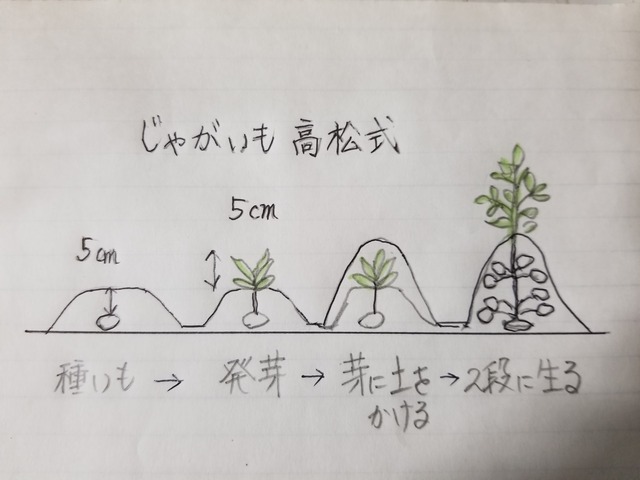 じゃがいも 高松式
5cm
5cm
種いも → 発芽 → 芽に土を → 2段に生る
かける